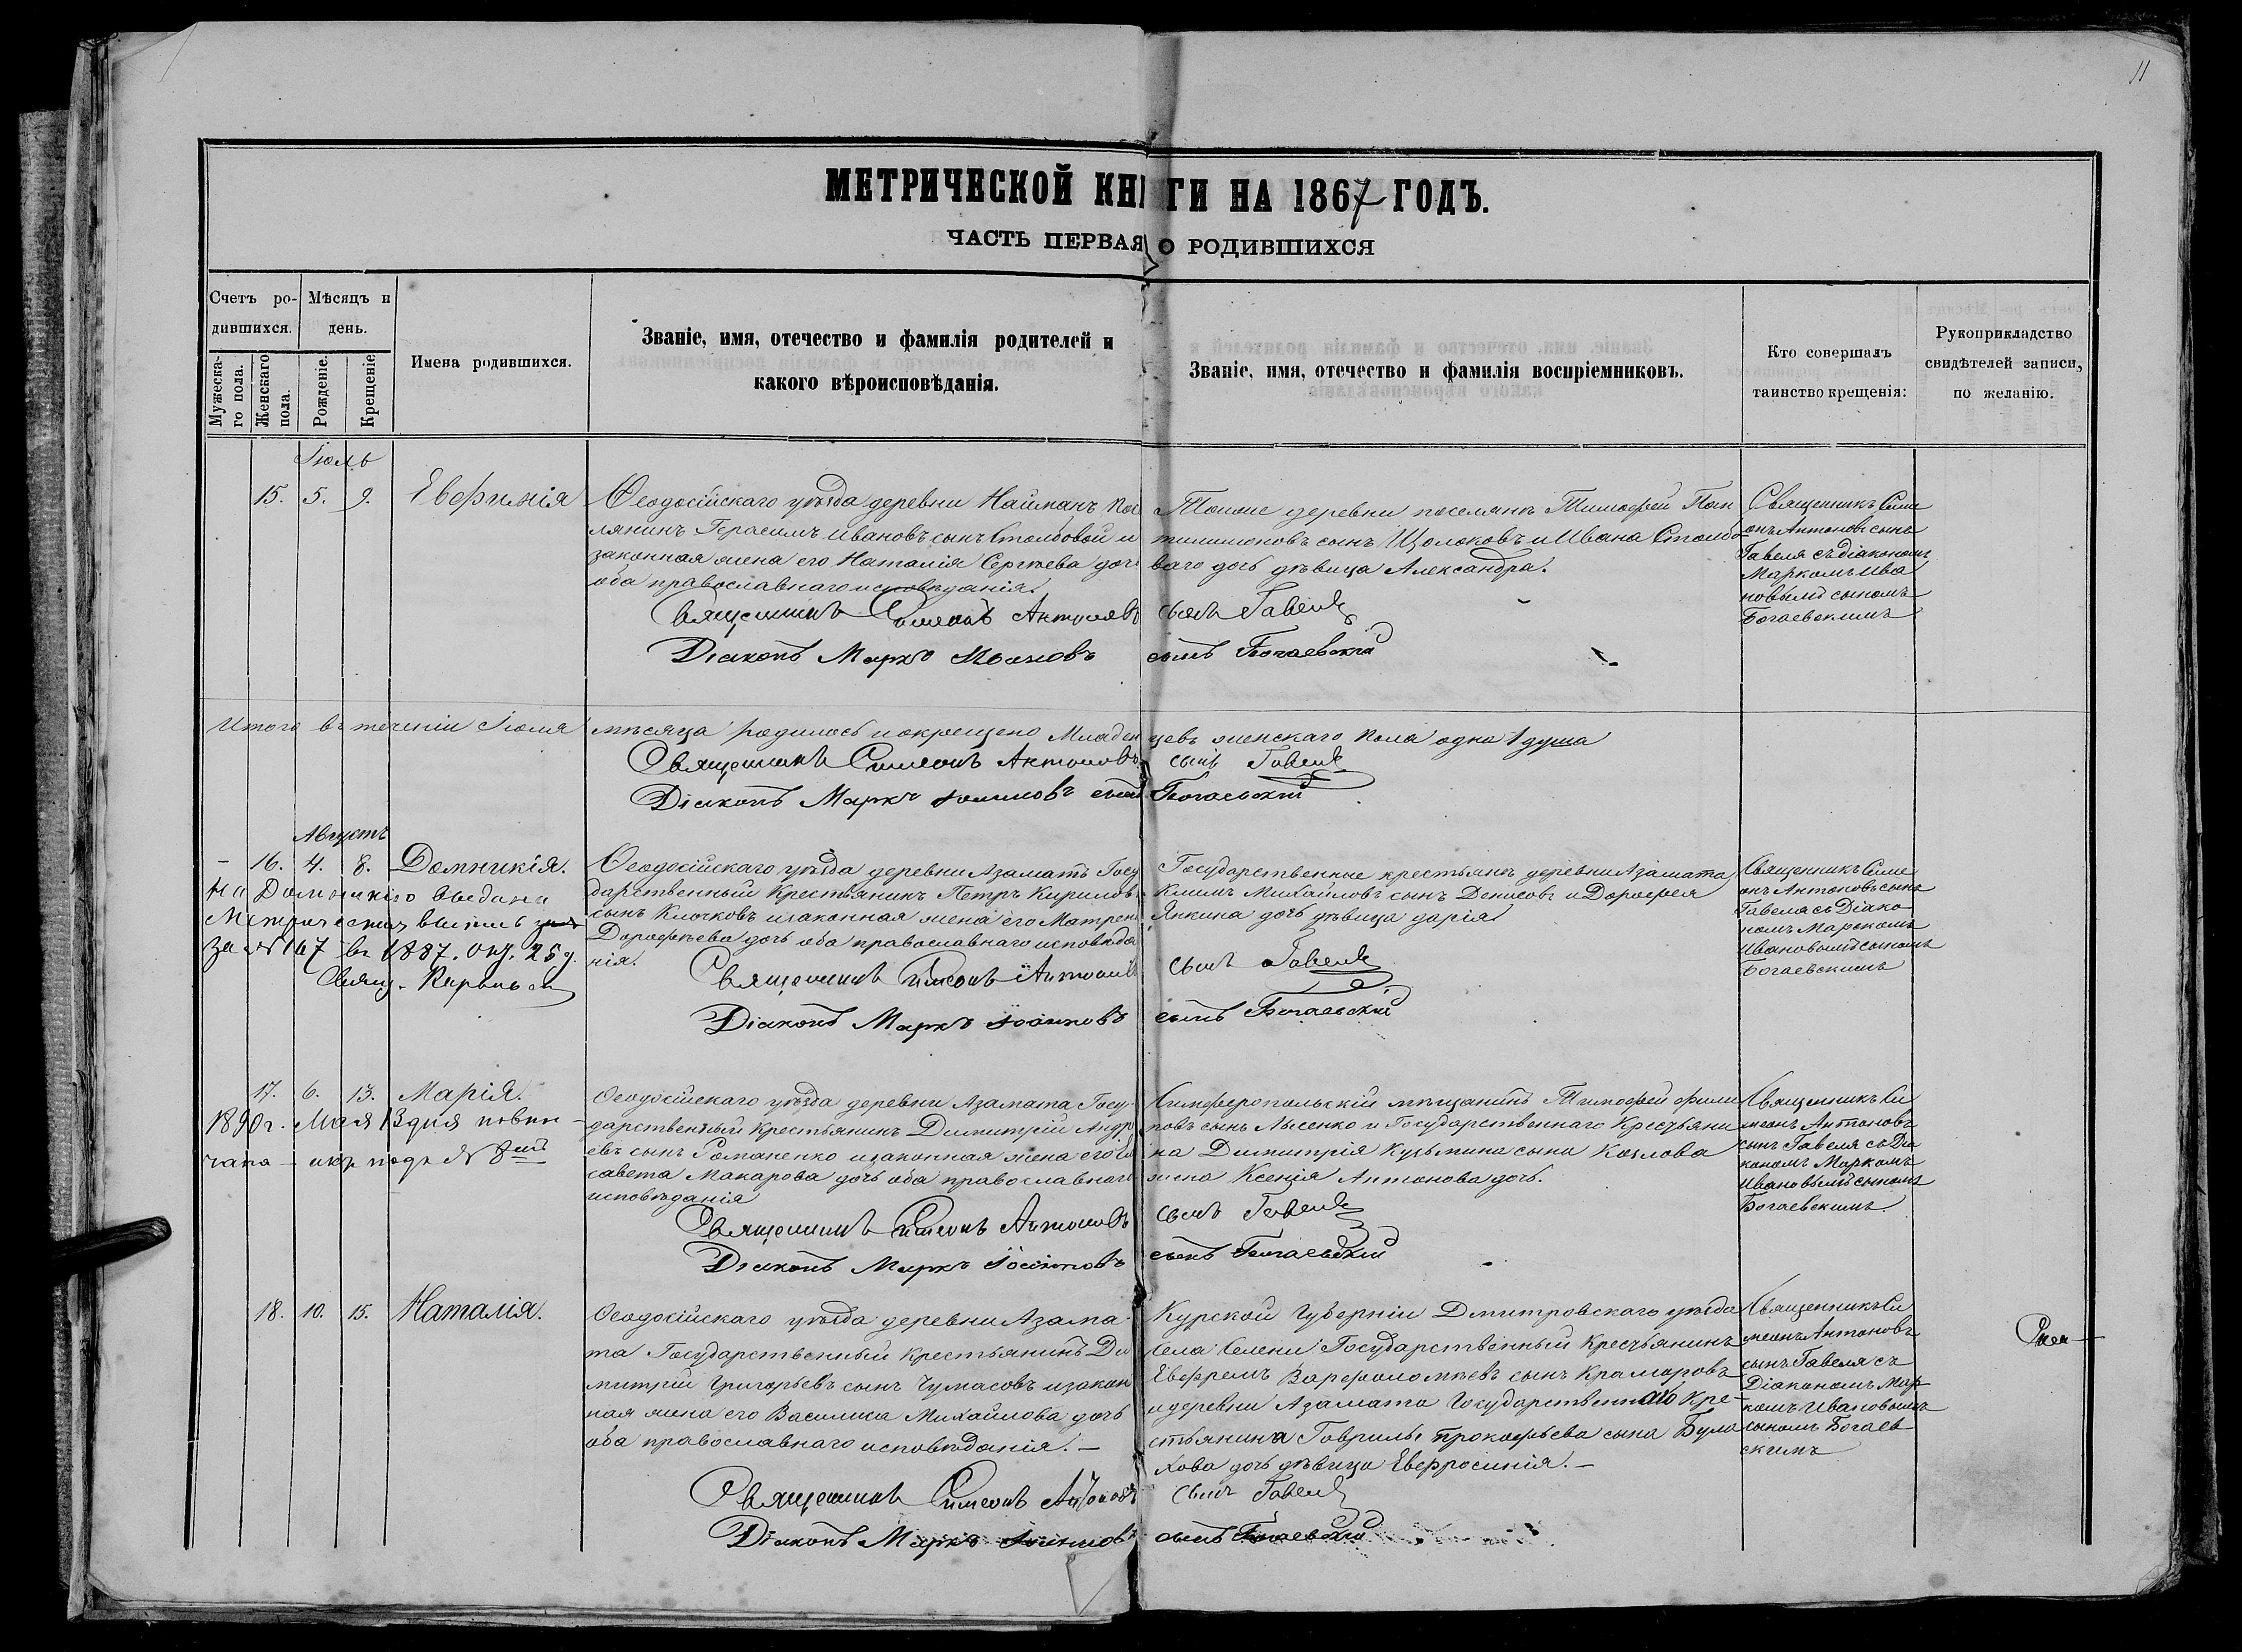 11
МЕТРИЧЕСКОЙ КНИГИ НА 1867 ГОДЪ.
ЧАСТЬ ПЕРВАЯ, О РОДИВШИХСЯ
Счетъ ро-
дившихся.
Мужеска-
го пола.
Женскаго
пола.
Мѣсяцъ и
день.
Рожденіе.
Крещеніе
Имена родившихся.
Званіе, имя, отечество и фамилія родителей и
какого вѣроисповѣданія.
Званіе, имя, отечество и фамилія воспріемниковъ.
Кто совершалъ
таинство крещенія:
Рукоприкладство
свидѣтелей записи,
по желанію.
Іюль
15. 5. 9. Евфимія
Ѳеодосійскаго уѣзда деревни Найманъ Посе
лянинъ Герасимъ Ивановъ сынъ Столбовой и
законная жена его Наталія Сергѣева дочь
оба православнаго исповѣданія.
Тойже деревни поселянъ Тимофей Пан
тилимоновъ сынъ Щолоковъ и Ивана Столбо
ваго дочь дѣвица Александра.
Священникъ Симе
онъ Антоновъ сынъ
Гавеля съ діакономъ
Маркомъ Ива
новымъ сыномъ
Богаевскимъ
Священникъ Симеонъ Антоновъ сынъ Гавеля
Діаконъ Маркъ Іоанновъ сынъ Богаевскій
Итого въ теченіи Іюля мѣсяца родилось и окрещено Младенцевъ женскаго пола одна 1 душа
Священникъ Симеонъ Антоновъ сынъ Гавеля
Діаконъ Маркъ Іоанновъ сынъ Богаевскій
Августъ
- 16. 4. 8. Домникія.
На Домникію выдана
Метрическая выпись
за № 167 въ 1887. Окт. 25 д.
Свящ.
Ѳеодосійскаго уѣзда деревни Азаматъ Госу
дарственный Крестьянинъ Петръ Кириловъ
сынъ Клочковъ и законная жена его Матрена
Дорофѣева дочь оба православнаго исповѣда
нія.
Государственные крестьянъ деревни Азамата
Климъ Михайловъ сынъ Денисовъ и Дорофея
Янкина дочь дѣвица Дарія
Священникъ Симе
онъ Антоновъ сынъ
Гавеля съ Діако
номъ Маркомъ
Ивановымъ сыномъ
Богаевскимъ
Священникъ Симеонъ Антоновъ сынъ Гавеля
Діаконъ Маркъ Іоанновъ сынъ Богаевскій
17. 6. 13. Марія.
1890 г. Мая 13 дня повѣн-
чана подъ № 8мъ
Ѳеодосійскаго уѣзда деревни Азамата Госу-
дарственный Крестьянинъ Димитрій Андре
евъ сынъ Романенко и законная жена его Ели
савета Макарова дочь оба православнаго
исповѣданія
Симферопольскій мѣщанинъ Тимофей Фили
повъ сынъ Лысенко и Государственнаго Крестьяни
на Димитрія Кузьмина сына Козлова
жена Ксенія Антонова дочь.
Священникъ Си
меонъ Антоновъ
сынъ Гавеля съ Діа
кономъ Маркомъ
Ивановымъ сыномъ
Богаевскимъ
Священникъ Симеонъ Антоновъ сынъ Гавеля
Діаконъ Маркъ Іоанновъ сынъ Богаевскій
18. 10. 15. Наталія.
Ѳеодосійскаго уѣзда деревни Азама-
та Государственный Крестьянинъ Ди
митрій Григорьевъ сынъ Чумасовъ и закон
ная жена его Василиса Михайлова дочь
оба православнаго исповѣданія. —
Курской Губерніи Дмитровскаго уѣзда
Села Селени Государственный Крестьянинъ
Ефремъ Варфоломѣевъ сынъ Крамаровъ
и деревни Азамата Государственнаго Кре-
стьянина Гаврилы Прокофьева сына Була
хова дочь дѣвица Евфросинія. —
Священникъ Си
меонъ Антоновъ
сынъ Гавеля съ
Діакономъ Мар
комъ Ивановымъ
сыномъ Богаев
скимъ
Священникъ Симеонъ Антоновъ сынъ Гавеля
Діаконъ Маркъ Іоанновъ сынъ Богаевскій